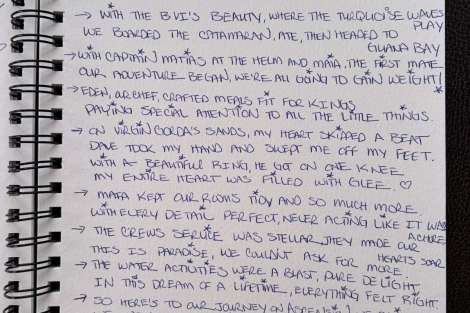 → WITH THE BVI'S BEAUTY, WHERE THE TURQUOISE WAVES PLAY
WE BOARDED THE CATAMARAN, ATE, THEN HEADED TO GUANA BAY
→ WITH CAPTAIN MATIAS AT THE HELM AND MAIA, THE FIRST MATE
OUR ADVENTURE BEGAN, WE'RE ALL GOING TO GAIN WEIGHT!
→ EDEN, AIRCHEF, CRAFTED MEALS FIT FOR KINGS
PAYING SPECIAL ATTENTION TO ALL THE LITTLE THINGS.
→ ON VIRGIN GORDA'S SANDS, MY HEART SKIPPED A BEAT
DAVE TOOK MY HAND AND SWEPT ME OFF MY FEET.
WITH A BEAUTIFUL RING, HE GOT ON ONE KNEE
MY ENTIRE HEART WAS FILLED WITH GLEE. ♡
→ MAIA KEPT OUR ROOMS TIDY AND SO MUCH MORE
WITH EVERY DETAIL PERFECT, NEVER ACTING LIKE IT WAS A CHORE
→ THE CREW'S SERVICE WAS STELLAR, THEY MADE OUR HEARTS SOAR
THIS IS PARADISE, WE COULDN'T ASK FOR MORE.
→ THE WATER ACTIVITIES WERE A BLAST, PURE DELIGHT
IN THIS DREAM OF A LIFETIME, EVERYTHING FELT RIGHT.
→ SO HERE'S TO OUR JOURNEY ON